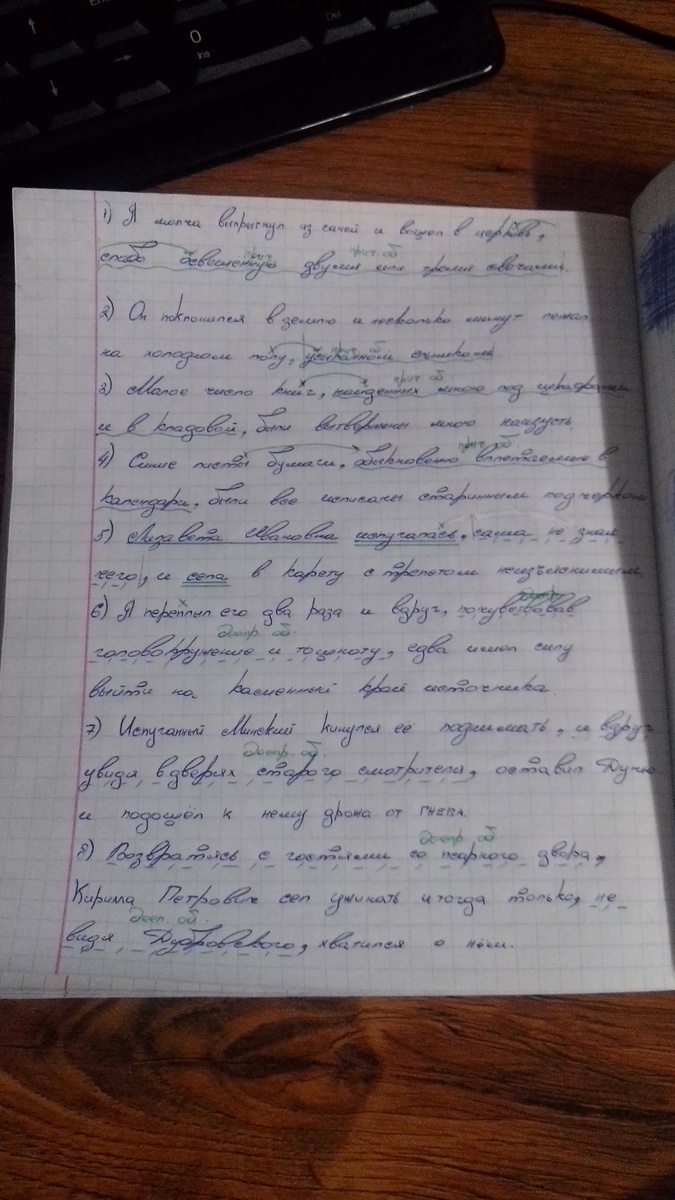 Del
0
Ins
1) Я молча выпрыгнул из саней и вошел в церковь,
прич. прич. об
слабо освещенную двумя или тремя свечами.
2) Он поклонился в землю и несколько минут лежал
прич. об
на холодном полу,
прич. об
3) Малое число книг, найденных мною под шкафами
и в кладовой, были вытвержены мною наизусть.
прич. об
4) Синие листы бумаги, обыкновенно вплетаемые в
календари, были все исписаны старинным подчерком
5) Лизавета Ивановна испугалась, сама не зная
чего, и села в карету с трепетом неизъяснимым.
6) Я переплыл его два раза и вдруг, почувствовав
деепр. об.
головокружение и тошноту, едва имел силу
выйти на каменный край источника.
7) Испуганный Минский кинулся её поднимать, и вдруг
деепр. об
увидя в дверях старого смотрителя, оставил Дуню
и подошёл к нему дрожа от гнева.
деепр. об
8) Возвратясь с гостями со псарного двора,
Кирила Петрович сел ужинать и тогда только, не
деп. об.
видя Дубровского, хватился о нём.